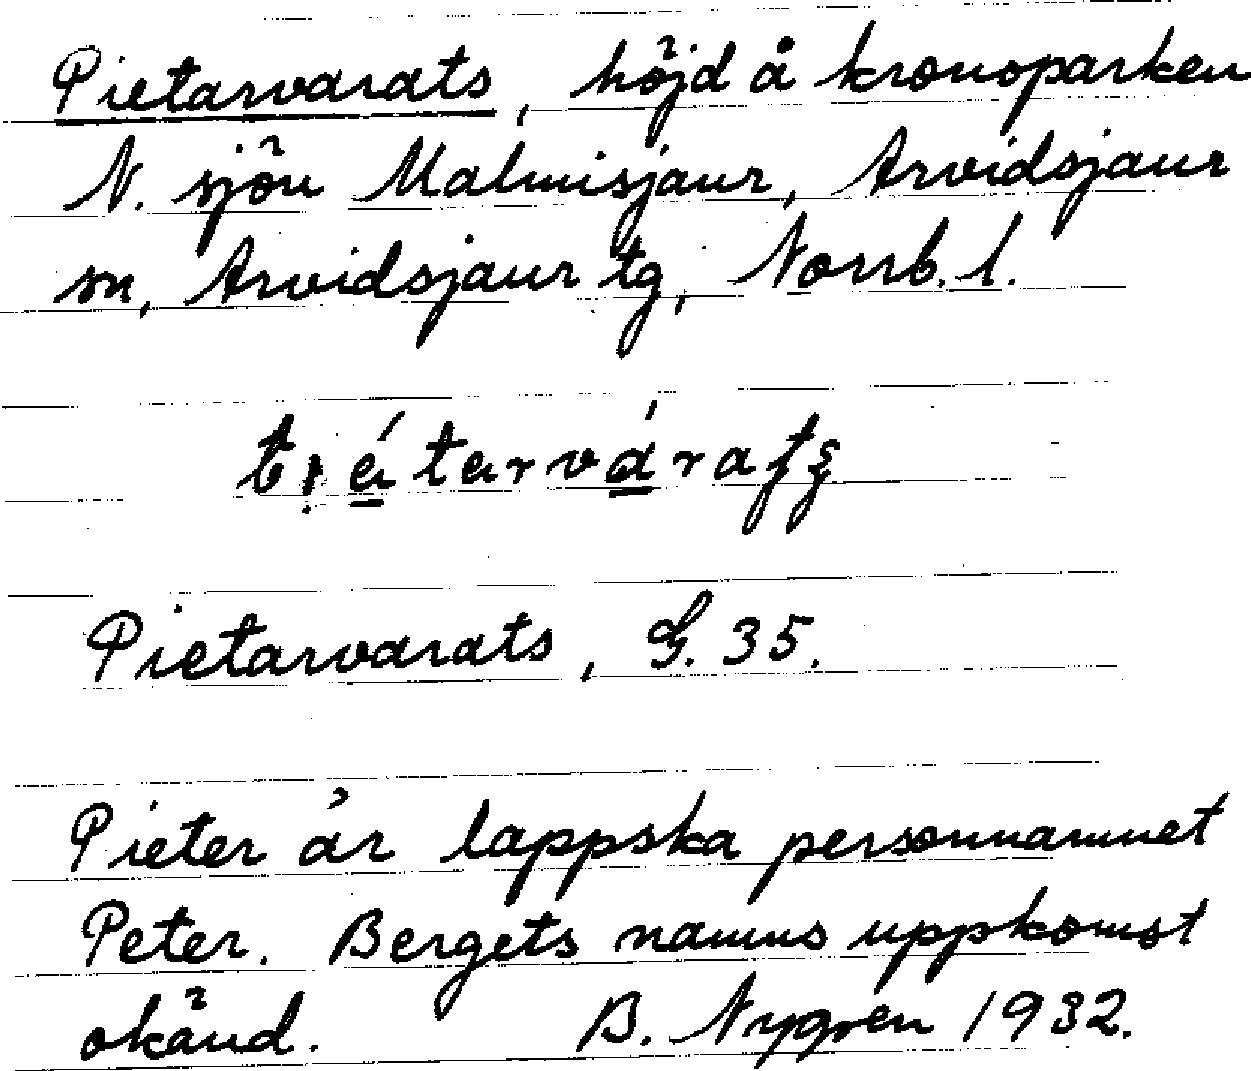 Pietarvarats, höjd å kronoparken
N. sjön Malmisjaur, Arvidsjaur
sn, Arvidsjaur tg, Norrb. l.
Pietarvarats, G. 35.
Pieter är lappska personnamnet
Peter. Bergets namns uppkomst
okänd. B. Nygren 1932.